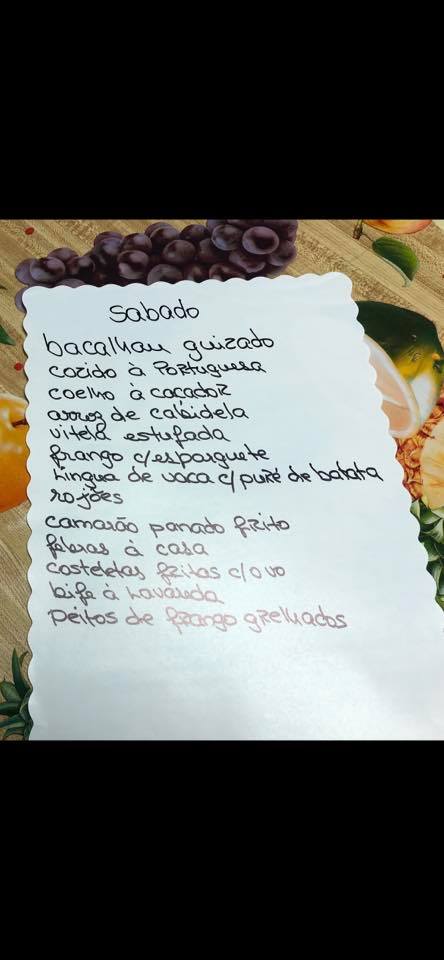 sabado
bacalhau guizado
cozido à Portuguesa
coelho à caçador
arroz de cabidela
vitela estufada
frango c/esparguete
Lingua de vaca c/puré de batata
rojões
camarão panado frito
febras à casa
costeletas fritas c/ovo
bife à Lavanda
Peitos de frango grelhados